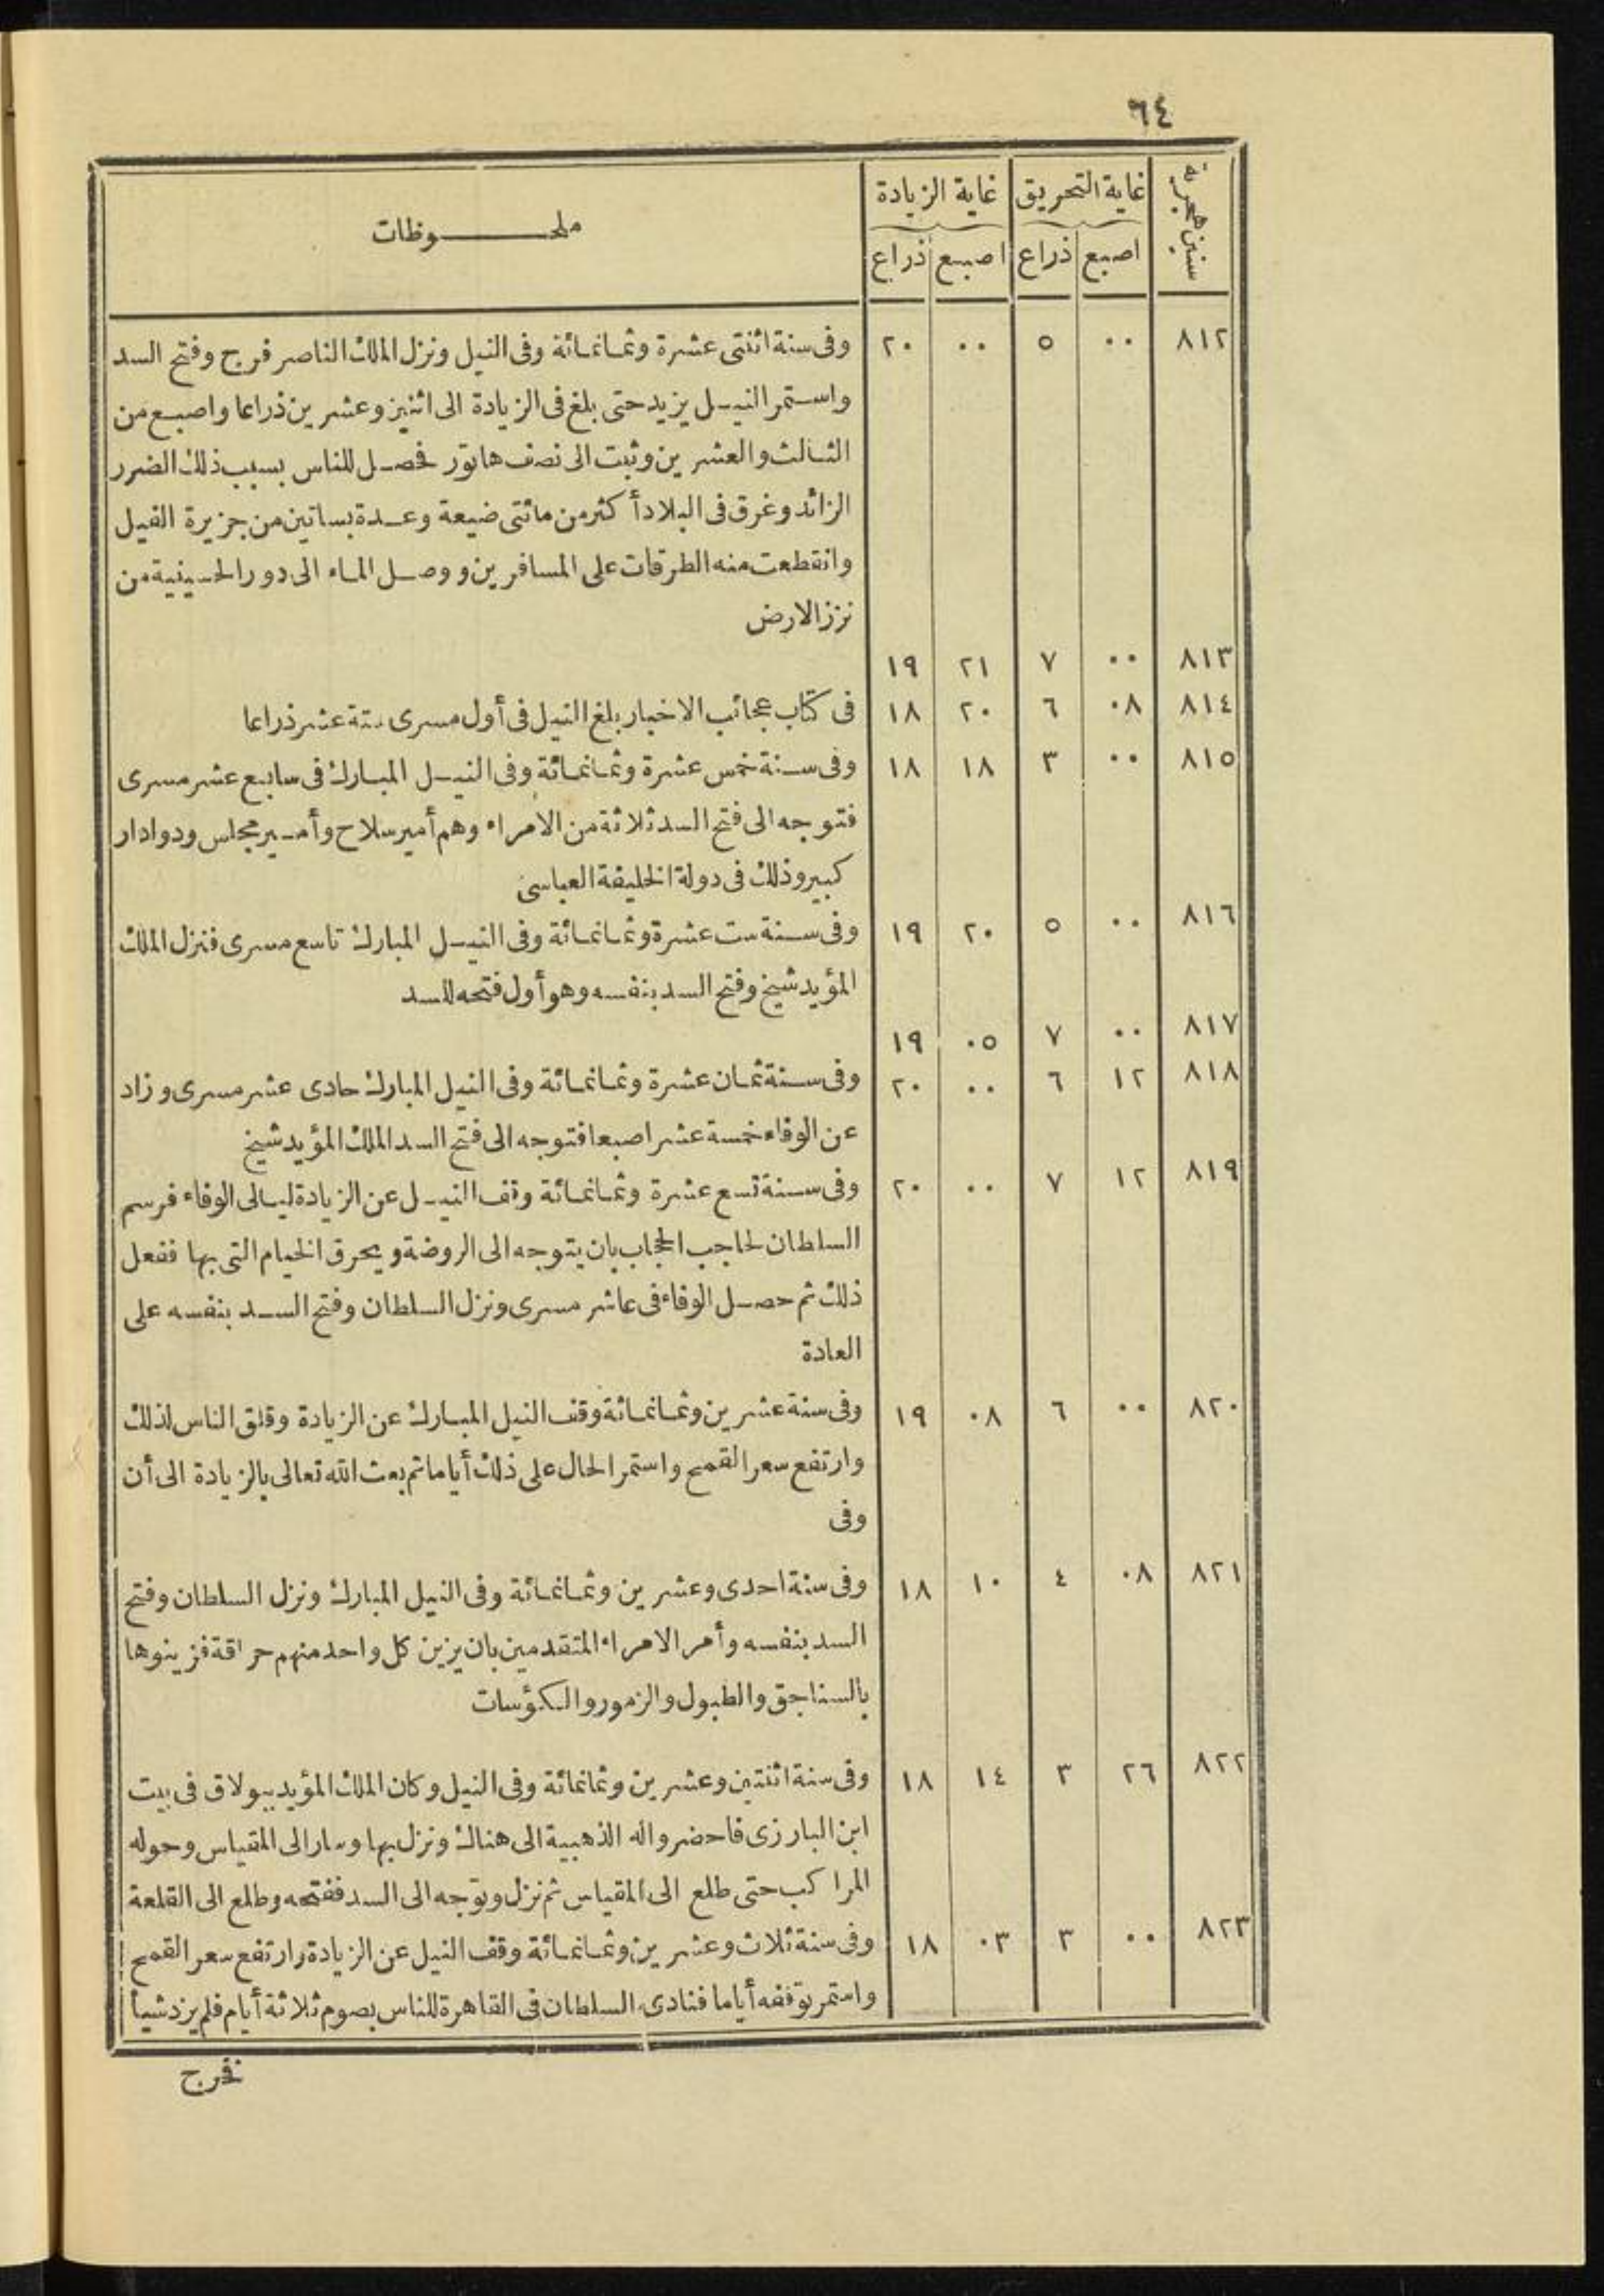 ٦٤
سنين هجرية | غاية التحريق | غاية الزيادة | ملحـوظات
اصبع | ذراع | اصبع | ذراع
٨١٢ ٠٠ ٥ ٠٠ ٢٠ وفى سنة اثنتى عشرة وثمانمائة وفى النيل ونزل الملك الناصر فرج وفتح السد
واستمر النيل يزيد حتى بلغ فى الزيادة الى اثنين وعشرين ذراعا واصبع من
الثالث والعشرين وثبت الى نصف هاتور فحصل للناس بسبب ذلك الضرر
الزائد وغرق فى البلاد أكثر من مائتى ضيعة وعدة بساتين من جزيرة الفيل
وانقطعت منه الطرقات على المسافرين ووصل الماء الى دور الحسينية من
نزز الارض
٨١٣ ٠٠ ٧ ٢١ ١٩
٨١٤ ٠٨ ٦ ٢٠ ١٨ فى كتاب عجائب الاخبار بلغ النيل فى أول مسرى ستة عشر ذراعا
٨١٥ ٠٠ ٣ ١٨ ١٨ وفى سنة خمس عشرة وثمانمائة وفى النيل المبارك فى سابع عشر مسرى
فتوجه الى فتح السد ثلاثة من الأمراء وهم أمير سلاح وأمير مجلس ودوادار
كبير وذلك فى دولة الخليفة العباسى
٨١٦ ٠٠ ٥ ٢٠ ١٩ وفى سنة ست عشرة وثمانمائة وفى النيل المبارك تاسع مسرى فنزل الملك
المؤيد شيخ وفتح السد بنفسه وهو أول فتحه للسد
٨١٧ ٠٠ ٧ ٠٥ ١٩
٨١٨ ١٢ ٦ ٠٠ ٢٠ وفى سنة ثمان عشرة وثمانمائة وفى النيل المبارك حادى عشر مسرى وزاد
عن الوفاء خمسة عشر اصبعا فتوجه الى فتح السد الملك المؤيد شيخ
٨١٩ ١٢ ٧ ٠٠ ٢٠ وفى سنة تسع عشرة وثمانمائة وقف النيل عن الزيادة ليالى الوفاء فرسم
السلطان لحاجب الحجاب بان يتوجه الى الروضة ويحرق الخيام التى بها ففعل
ذلك ثم حصل الوفاء فى عاشر مسرى ونزل السلطان وفتح السد بنفسه على
العادة
٨٢٠ ٠٠ ٦ ٠٨ ١٩ وفى سنة عشرين وثمانمائة وقف النيل المبارك عن الزيادة وقلق الناس لذلك
وارتفع سعر القمح واستمر الحال على ذلك أياما ثم بعث الله تعالى بالزيادة الى أن
وفى
٨٢١ ٠٨ ٤ ١٠ ١٨ وفى سنة احدى وعشرين وثمانمائة وفى النيل المبارك ونزل السلطان وفتح
السد بنفسه وأمر الامراء المتقدمين بان يزين كل واحد منهم حراقة فزينوها
بالسناجق والطبول والزمور والكؤسات
٨٢٢ ٢٦ ٣ ١٤ ١٨ وفى سنة اثنتين وعشرين وثمانمائة وفى النيل وكان الملك المؤيد ببولاق فى بيت
ابن البارزى فاحضروا له الذهبية الى هناك ونزل بها وسار الى المقياس وحوله
المراكب حتى طلع الى المقياس ثم نزل وتوجه الى السد ففتحه وطلع الى القلعة
٨٢٣ ٠٠ ٣ ٠٣ ١٨ وفى سنة ثلاث وعشرين وثمانمائة وقف النيل عن الزيادة وارتفع سعر القمح
واستمر توقفه أياما فنادى السلطان فى القاهرة للناس بصوم ثلاثة أيام فلم يزد شيأ
فخرج